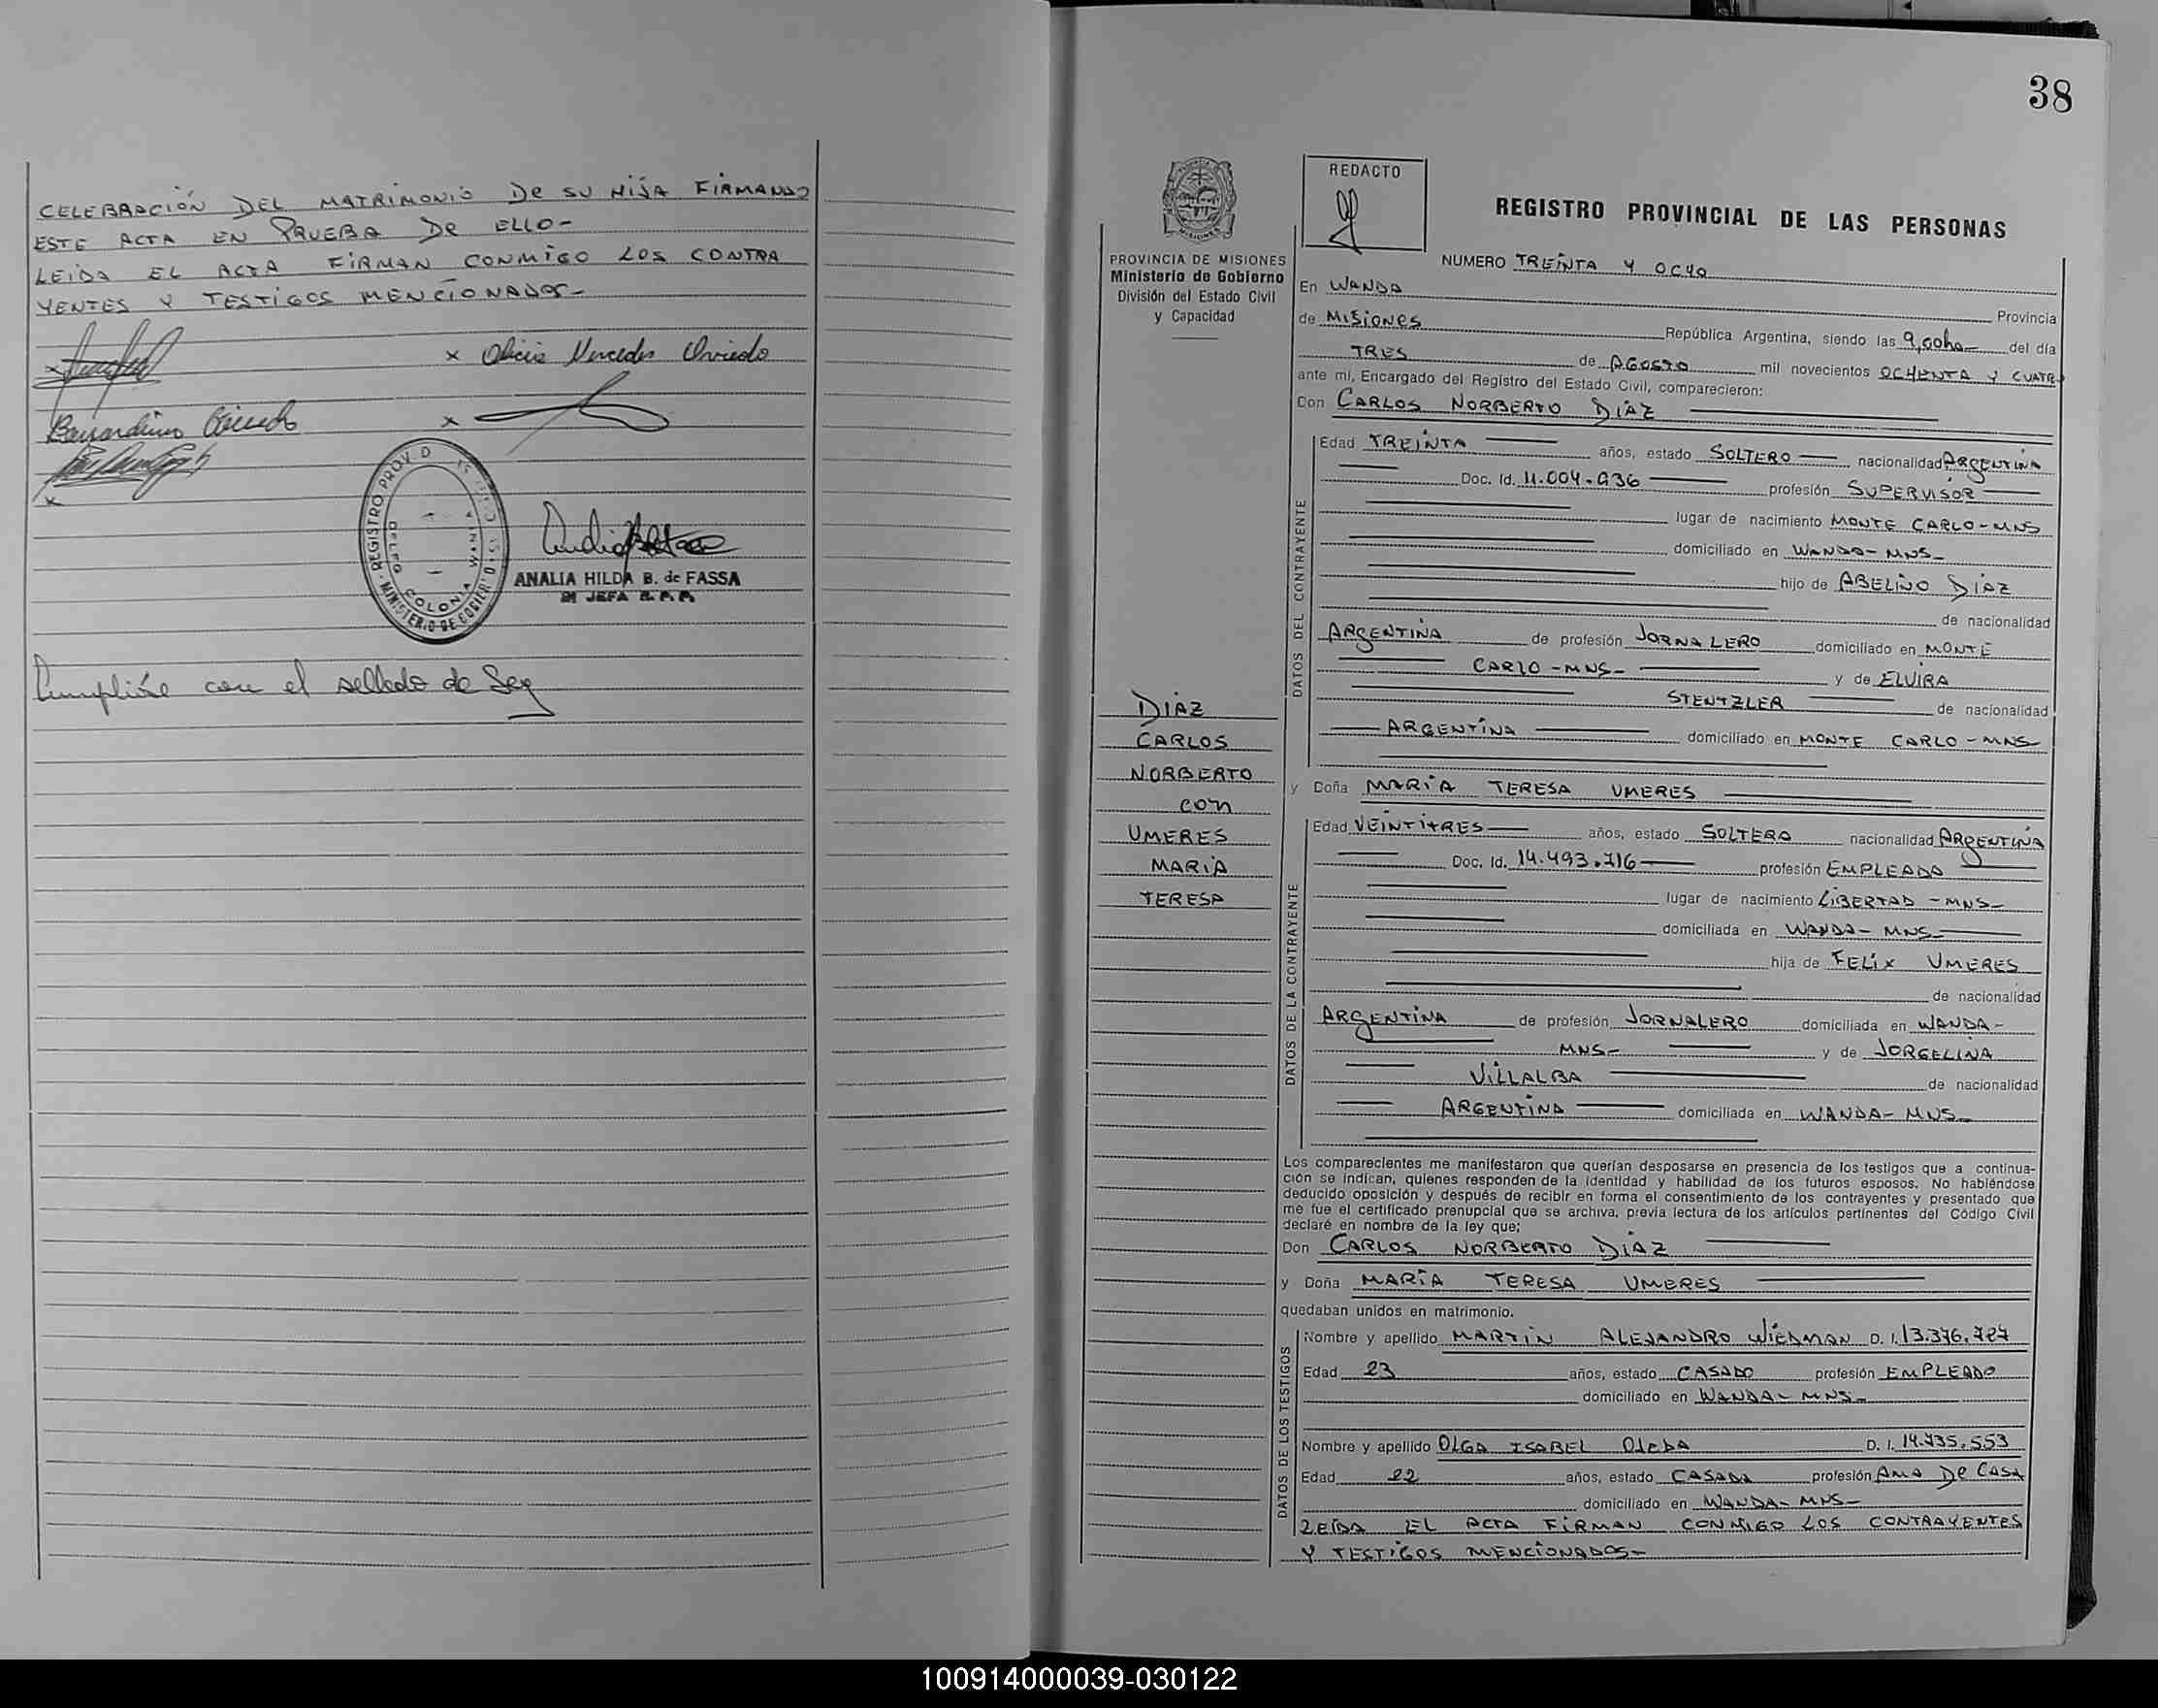 CELEBRACIÓN DEL MATRIMONIO De SU HIJA FIRMANDO
ESTE ACTA EN PRUEBA De ELLO-
LEIDA EL ACTA FIRMAN CONMIGO LOS CONTRA
YENTES Y TESTIGOS MENCIONADOS-
x Alicia Mercedes Oviedo
x
ANALIA HILDA B. de FASSA
Cumplióse con el sellado de Ley
38
PROVINCIA DE MISIONES
Ministerio de Gobierno
División del Estado Civil
y Capacidad
DIAZ
CARLOS
NORBERTO
con
UMERES
MARIA
TERESA
REDACTO
REGISTRO PROVINCIAL DE LAS PERSONAS
NUMERO TREINTA Y OCHO
En WANDA Provincia
de MISIONES República Argentina, siendo las 9,00hs del día
TRES de AGOSTO mil novecientos OCHENTA Y CUATRO
ante mí, Encargado del Registro del Estado Civil, comparecieron:
Don CARLOS NORBERTO DIAZ
DATOS DEL CONTRAYENTE
Edad TREINTA años, estado SOLTERO nacionalidad ARGENTINA
Doc. Id. 11.004.936 profesión SUPERVISOR
lugar de nacimiento MONTE CARLO-MNS
domiciliado en WANDA-MNS-
hijo de ABELINO DIAZ
de nacionalidad
ARGENTINA de profesión JORNALERO domiciliado en MONTE
CARLO-MNS- y de ELVIRA
STENTZLER de nacionalidad
ARGENTINA domiciliado en MONTE CARLO-MNS-
y Doña MARIA TERESA UMERES
DATOS DE LA CONTRAYENTE
Edad VEINTITRES años, estado SOLTERA nacionalidad ARGENTINA
Doc. Id. 14.493.716 profesión EMPLEADA
lugar de nacimiento LIBERTAD-MNS-
domiciliada en WANDA-MNS-
hija de FELIX UMERES
de nacionalidad
ARGENTINA de profesión JORNALERO domiciliada en WANDA-
MNS- y de JORGELINA
VILLALBA de nacionalidad
ARGENTINA domiciliada en WANDA-MNS-
Los comparecientes me manifestaron que querían desposarse en presencia de los testigos que a continua-
ción se indican, quienes responden de la identidad y habilidad de los futuros esposos. No habiéndose
deducido oposición y después de recibir en forma el consentimiento de los contrayentes y presentado que
me fue el certificado prenupcial que se archiva, previa lectura de los artículos pertinentes del Código Civil
declaré en nombre de la ley que:
Don CARLOS NORBERTO DIAZ
y Doña MARIA TERESA UMERES
quedaban unidos en matrimonio.
DATOS DE LOS TESTIGOS
Nombre y apellido MARTIN ALEJANDRO WIEDMAN D. I. 13.376.727
Edad 23 años, estado CASADO profesión EMPLEADO
domiciliado en WANDA-MNS-
Nombre y apellido OLGA ISABEL OJEDA D. I. 14.735.553
Edad 22 años, estado CASADA profesión AMA De CASA
domiciliado en WANDA-MNS-
LEIDA EL ACTA FIRMAN CONMIGO LOS CONTRAYENTES
Y TESTIGOS MENCIONADOS-
100914000039-030122